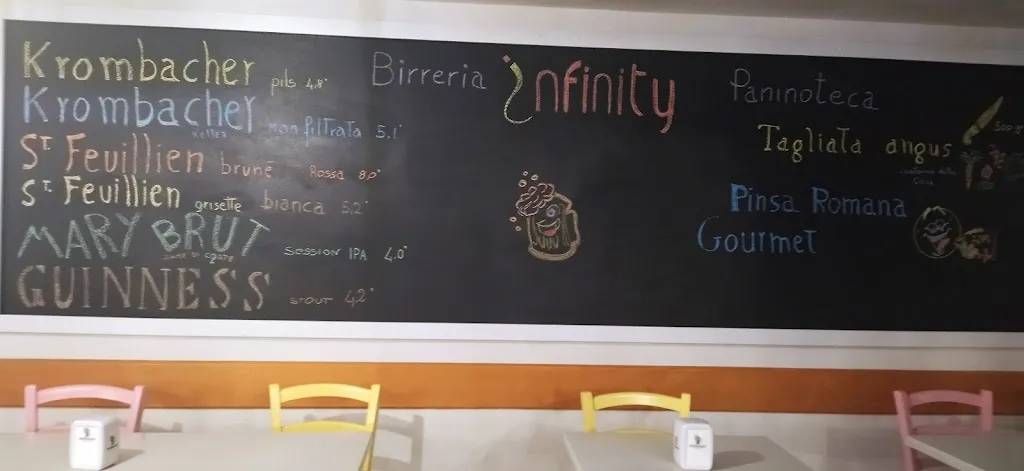 Krombacher pils 4,8°
Krombacher
Keller non filtrata 5.1°
St. Feuillien brune Rossa 8,0°
St. Feuillien grisette bianca 5,2°
MARY BRUT
SESSION IPA 4.0°
GUINNESS STOUT 4,2°
Birreria infinity
Paninoteca
Tagliata angus
500 gr
Pinsa Romana
Gourmet